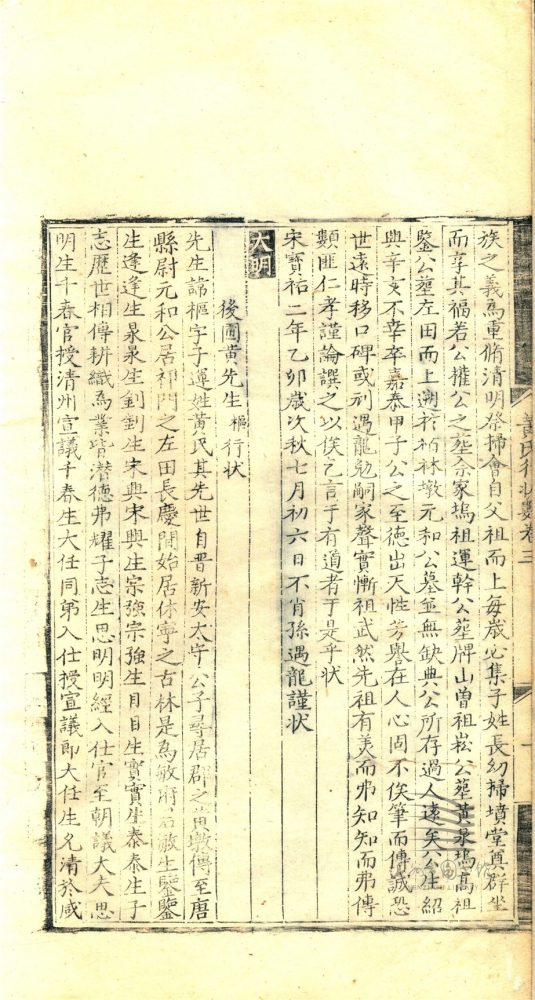 族之義為重脩清明祭掃會自父祖而上每歲必集子姓長幼掃墳堂奠群坐
而享其福若公權公之塋佘家塢祖運幹公塋牌山曽祖崧公塋黃泉塢高祖
鑒公塋左田而上遡於栢林墩元和公墓並無缺典公所存過人遠矣公生紹
興辛亥不幸卒嘉泰甲子公之至德出天性芳譽在人心固不俟筆而傳誠恐
世遠時移口碑或刓遇龍勉嗣家聲實慚祖武然先祖有美而弗知知而弗傳
類匪仁孝謹論譔之以俟乞言于有道者于是乎状
宋寶祐二年乙卯歲次秋七月初六日不肖孫遇龍謹状
大明
後圃黃先生樞行状
先生諱樞字子運姓黃氏其先世自晉新安太守公子尋居郡之黃墩傳至唐
縣尉元和公居祁門之左田長慶間始居休寧之古林是為敏府君敏生鑒鑒
生逢逢生泉泉生釗釗生宋興宋興生宗強宗強生目目生實實生泰泰生子
志歷世相傳耕織為業皆潛德弗耀子志生思明明經入仕官至朝議大夫思
明生千春官授清州宣議千春生大任同弟入仕授宣議郎大任生允清於咸
黃氏行状類卷三